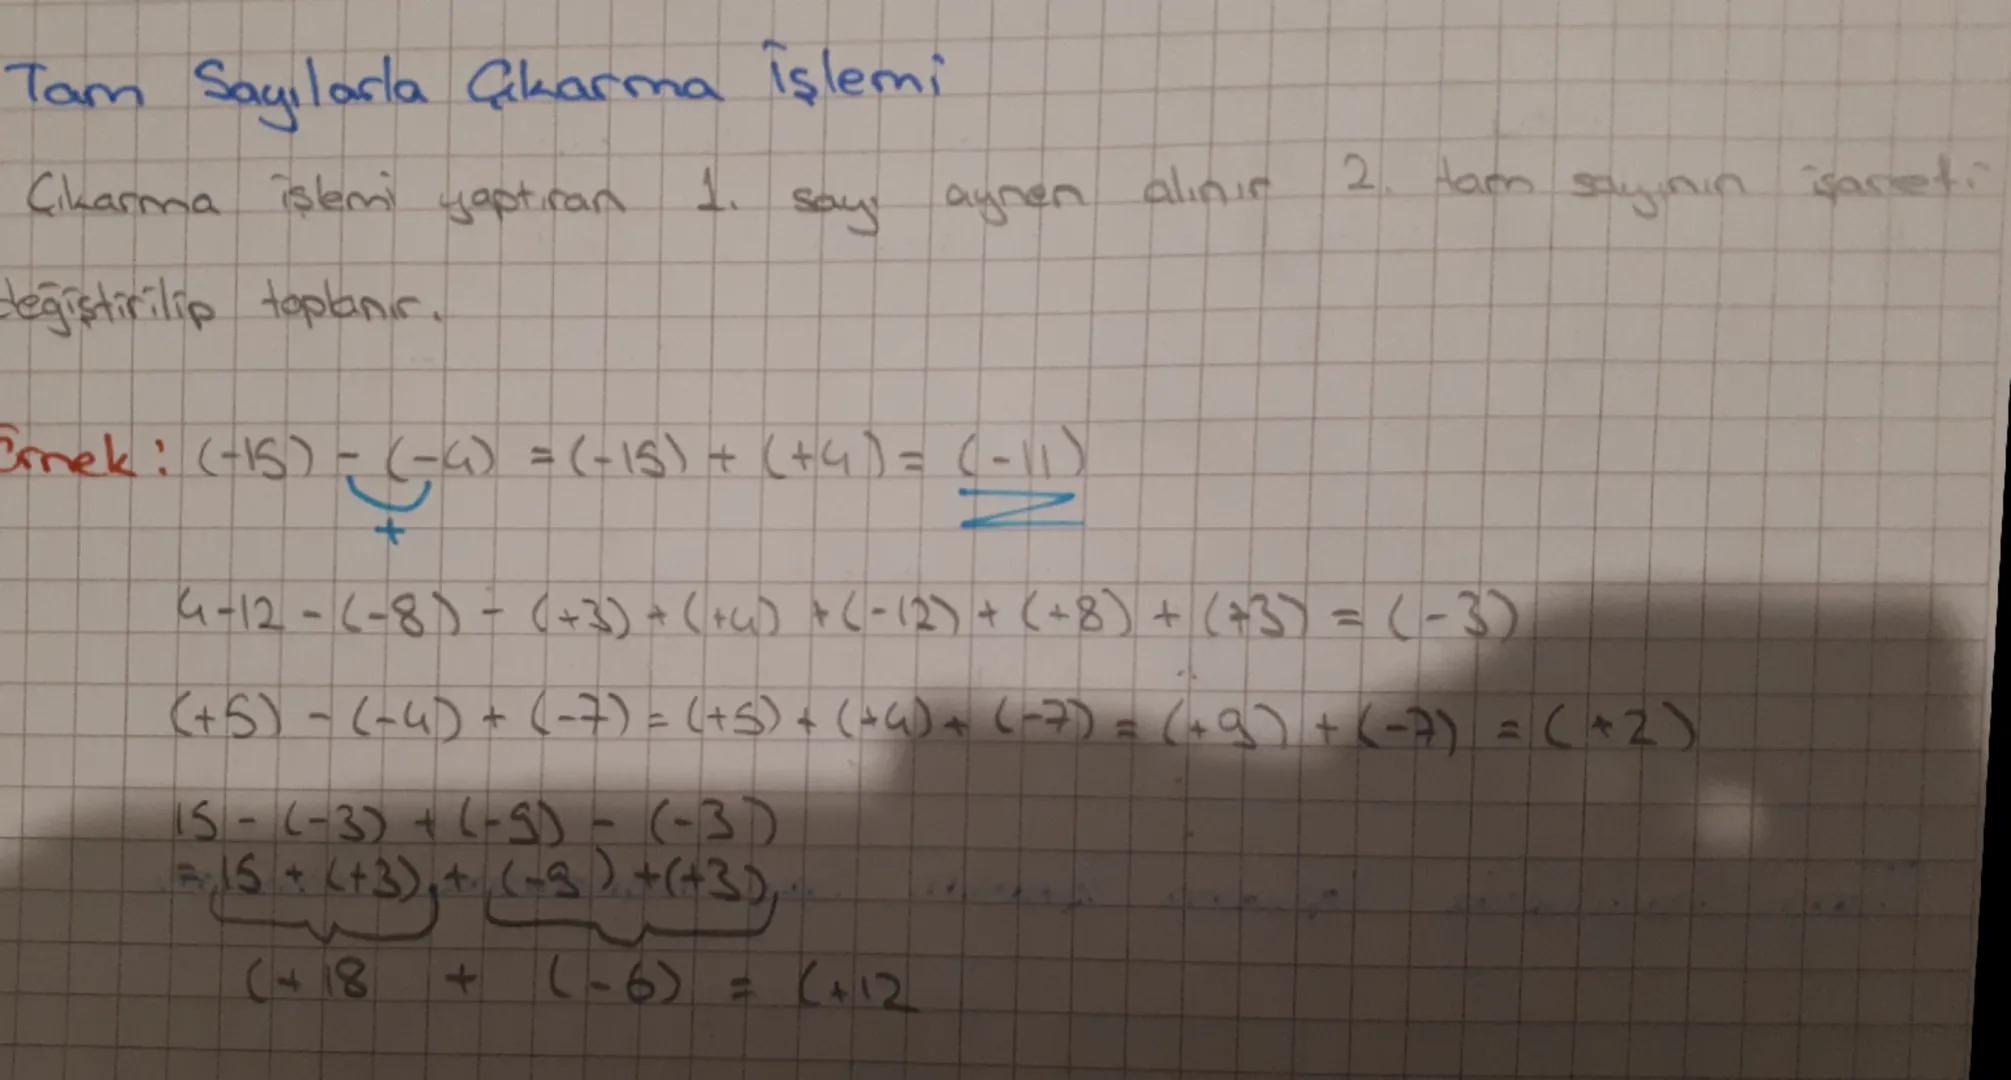 Tam Sayılarla Çıkarma İşlemi
Çıkarma işlemi yaptıran 1. sayı aynen alınır 2. tam sayının işareti
değiştirilip toplanır.
Örnek: (-15) - (-4) = (-15) + (+4) = (-11)
+
4-12 - (-8) - (+3) + (+4) + (-12) + (+8) + (+3) = (-3)
(+5) - (-4) + (-7) = (+5) + (+4) + (-7) = (+9) + (-7) = (+2)
15 - (-3) + (-9) - (-3)
= 15 + (+3) + (-9) + (+3)
(+18 + (-6) = (+12